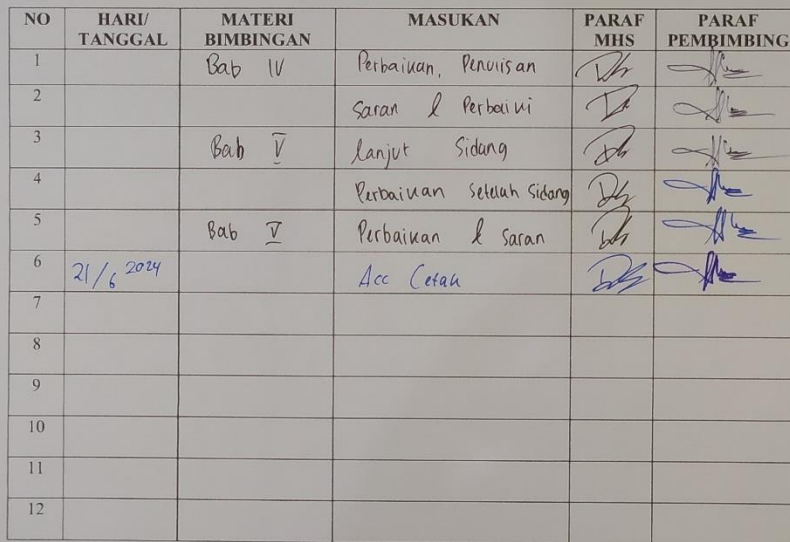 NO HARI/ TANGGAL MATERI BIMBINGAN MASUKAN PARAF MHS PARAF PEMBIMBING
1 Bab IV Perbaikan, Penulisan
2 saran & Perbaiki
3 Bab V lanjut Sidang
4 Perbaikan setelah Sidang
5 Bab V Perbaikan & saran
6 21/6 2024 Acc Cetak
7
8
9
10
11
12